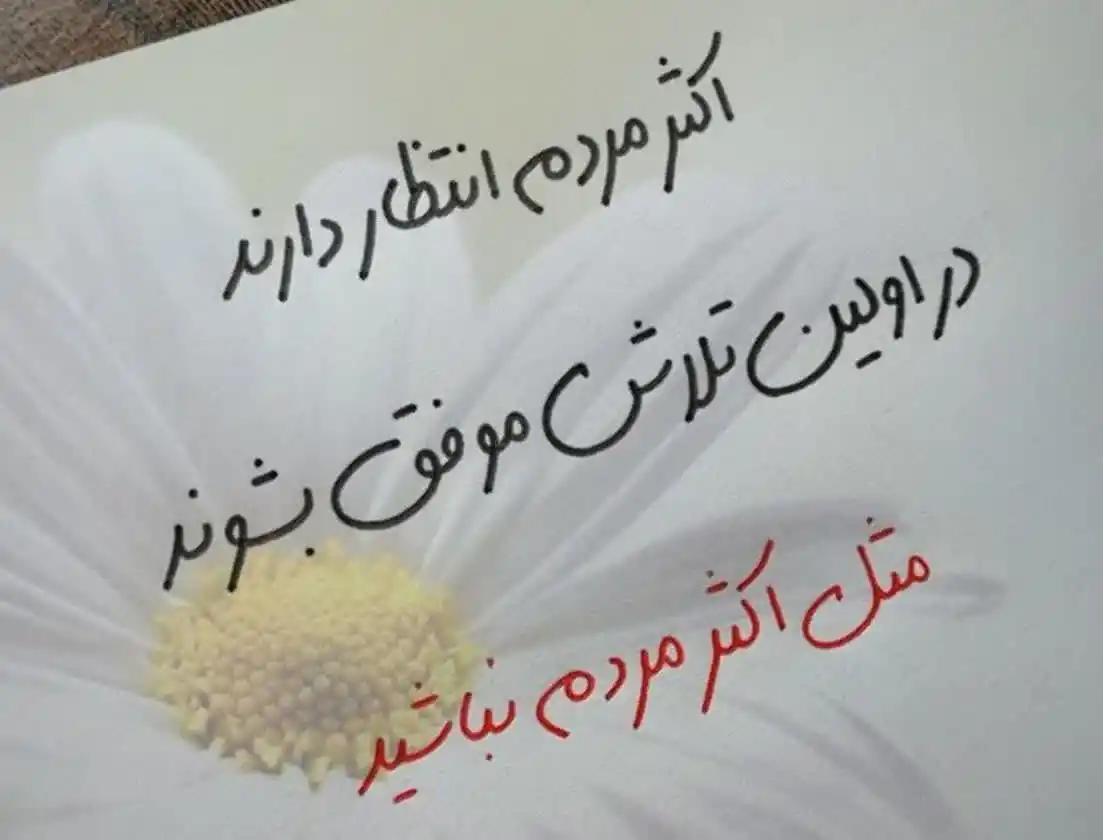 اکثر مردم انتظار دارند
در اولین تلاش موفق بشوند
مثل اکثر مردم نباشید